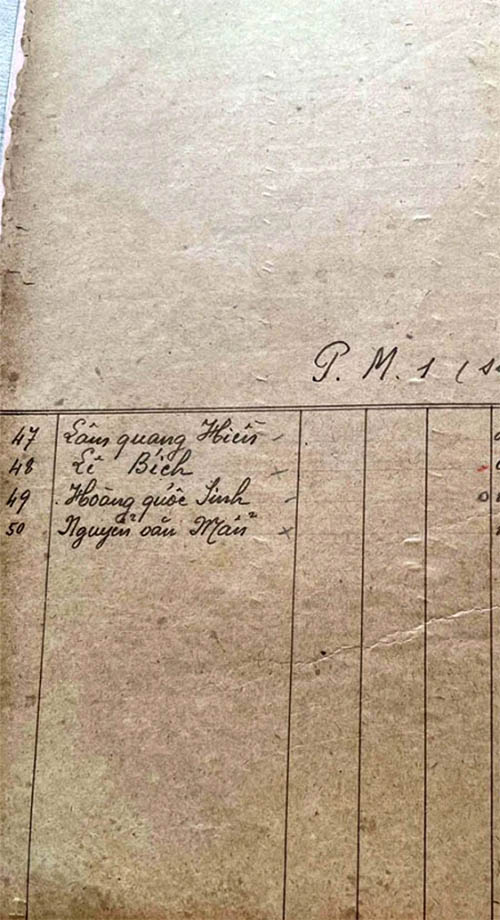 P. M. 1 (
47 Lâm quang Hiển -
48 Lê Bích x
49 Hoàng quốc Sinh -
50 Nguyễn văn Mẫn x